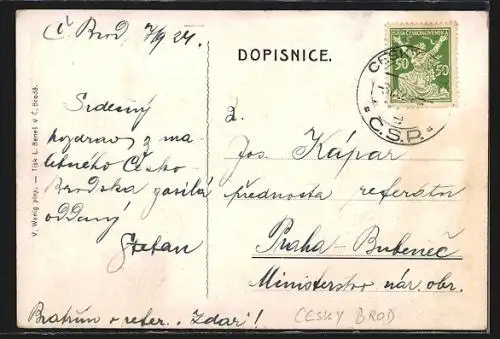 Č. Brod 7/9 24.
DOPISNICE.
POŠTA ČESKOSLOVENSKÁ
50 50
ČESKÝ
* Č.S.P. *
V. Wenig pinx. — Tisk L. Beneš v Č. Brodě.
Srdečný
pozdrav z ma-
lebného Česko
Brodska zasílá
oddaný
Štefan
Jos. Kápar
přednosta referátu
Praha – Bubeneč
Ministerstvo nár. obr.
Bratřím v refer. "Zdar"!
CESKY BROD